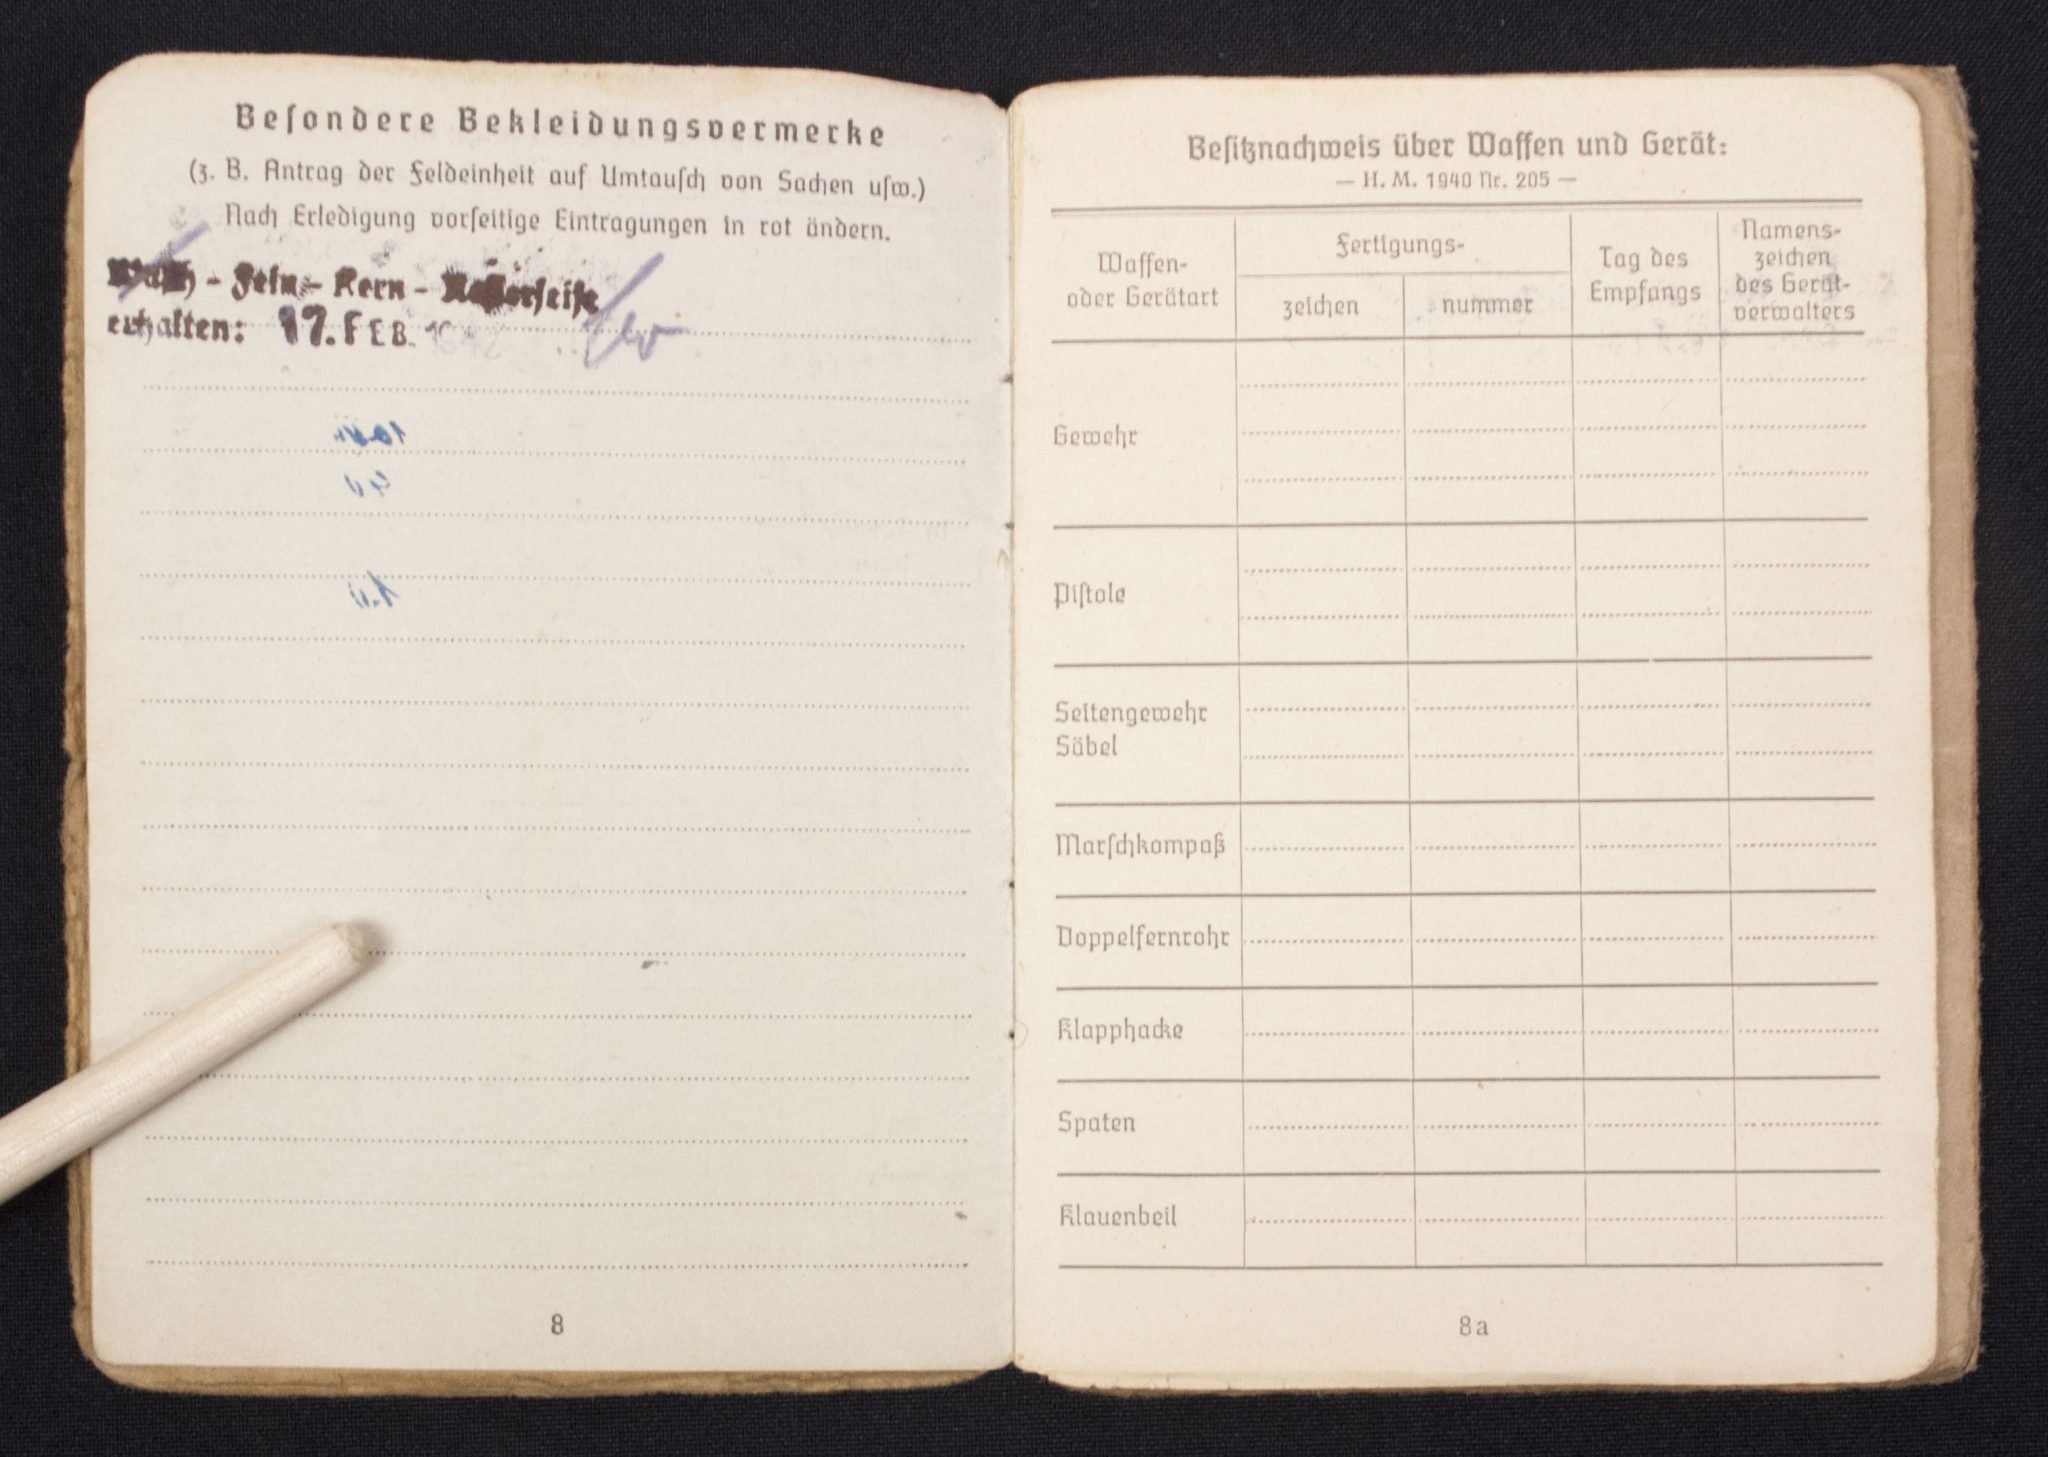 Besondere Bekleidungsvermerke
(z. B. Antrag der Feldeinheit auf Umtausch von Sachen usw.)
Nach Erledigung vorseitige Eintragungen in rot ändern.
Wasch - Fein - Kern - Rasierseife
erhalten: 17. FEB. 1942
8
Besitznachweis über Waffen und Gerät:
— H. M. 1940 Nr. 205 —
Waffen-
oder Gerätart
Fertigungs-
zeichen
nummer
Tag des
Empfangs
Namens-
zeichen
des Gerät-
verwalters
Gewehr
Pistole
Seitengewehr
Säbel
Marschkompaß
Doppelfernrohr
Klapphacke
Spaten
Klauenbeil
8a